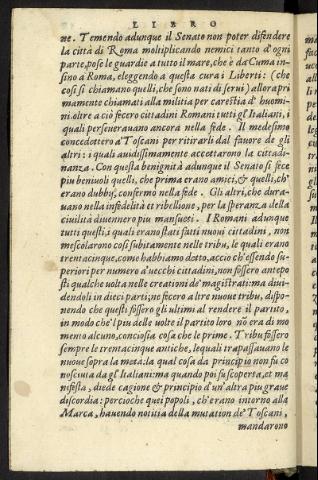 LIBRO
ne. Temendo adunque il Senato non poter difendere
la città di Roma moltiplicando nemici tanto d'ogni
parte, pose le guardie a tutto il mare, che è da Cuma in-
sino a Roma, eleggendo a questa cura i Liberti: (che
cosi si chiamano quelli, che sono nati di serui) allora pri
mamente chiamati alla militia per carestia d'huomi-
ni. oltre a ciò fecero cittadini Romani tutti gl'Italiani, i
quali perseuerauano ancora nella fede. Il medesimo
concedettero a'Toscani per ritirarli dal fauore de gli
altri: i quali auidissimamente accettarono la cittadi-
nanza. Con questa benignità adunque il Senato si fece
piu beniuoli quelli, che prima erano amici, & quelli, ch'
erano dubbij, confermò nella fede. Gli altri, che dura-
uano nella infedeltà et ribellione, per la speranza della
ciuilità diuennero piu mansueti. I Romani adunque
tutti questi, i quali erano stati fatti nuoui cittadini, non
mescolarono cosi subitamente nelle tribu, le quali erano
trentacinque, come habbiamo detto, accio ch'essendo su-
periori per numero a'uecchi cittadini, non fossero antepo
sti qualche uolta nelle creationi de' magistrati: ma diui-
dendoli in dieci parti, ne fecero altre nuoue tribu, dispo-
nendo che questi fossero gli ultimi al rendere il partito,
in modo che'l piu delle uolte il partito loro nō era di mo
mento alcuno, conciosia cosa che le prime Tribu fossero
sempre le trentacinque antiche, lequali trapassauano le
nuoue sopra la metà: la qual cosa da principio non fu co
nosciuta da gl'Italiani: ma quando poi fu scoperta, et ma
nifesta, diede cagione & principio d'un'altra piu graue
discordia: percioche quei popoli, ch'erano intorno alla
Marca, hauendo notitia della mutation de' Toscani,
mandarono